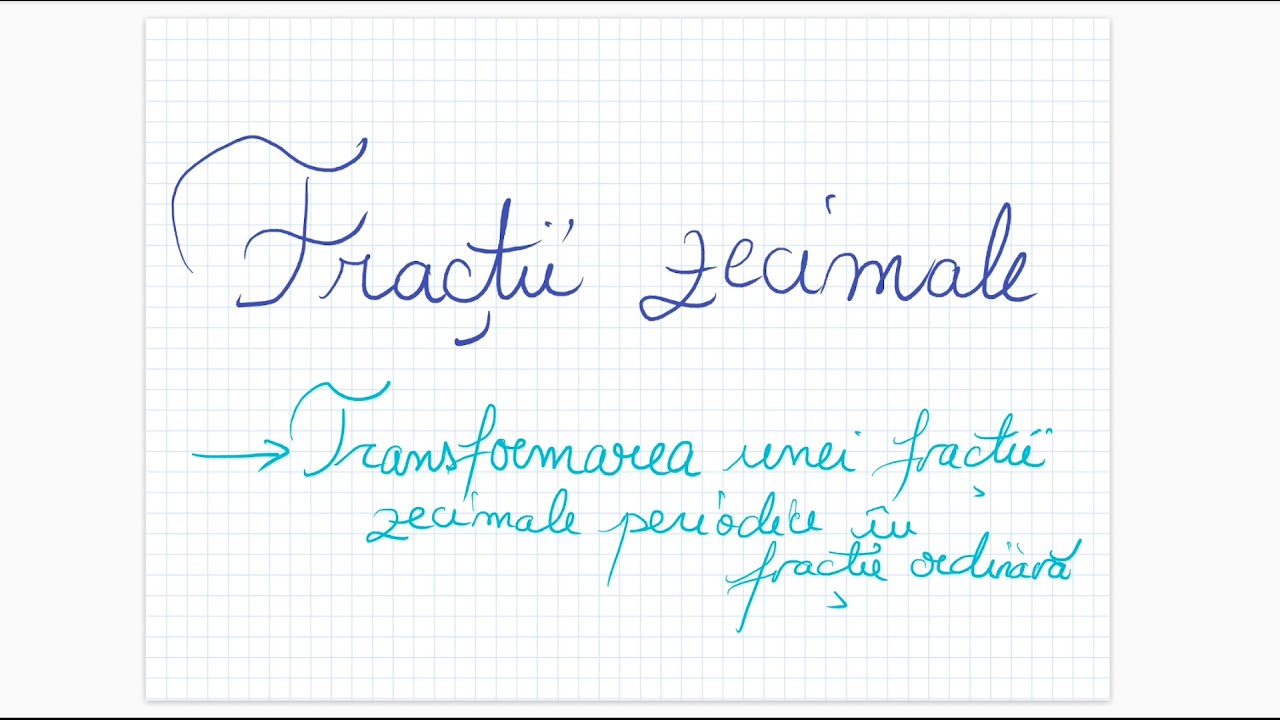 Fracții zecimale
→ Transformarea unei fracții
zecimale periodice în
fracție ordinară